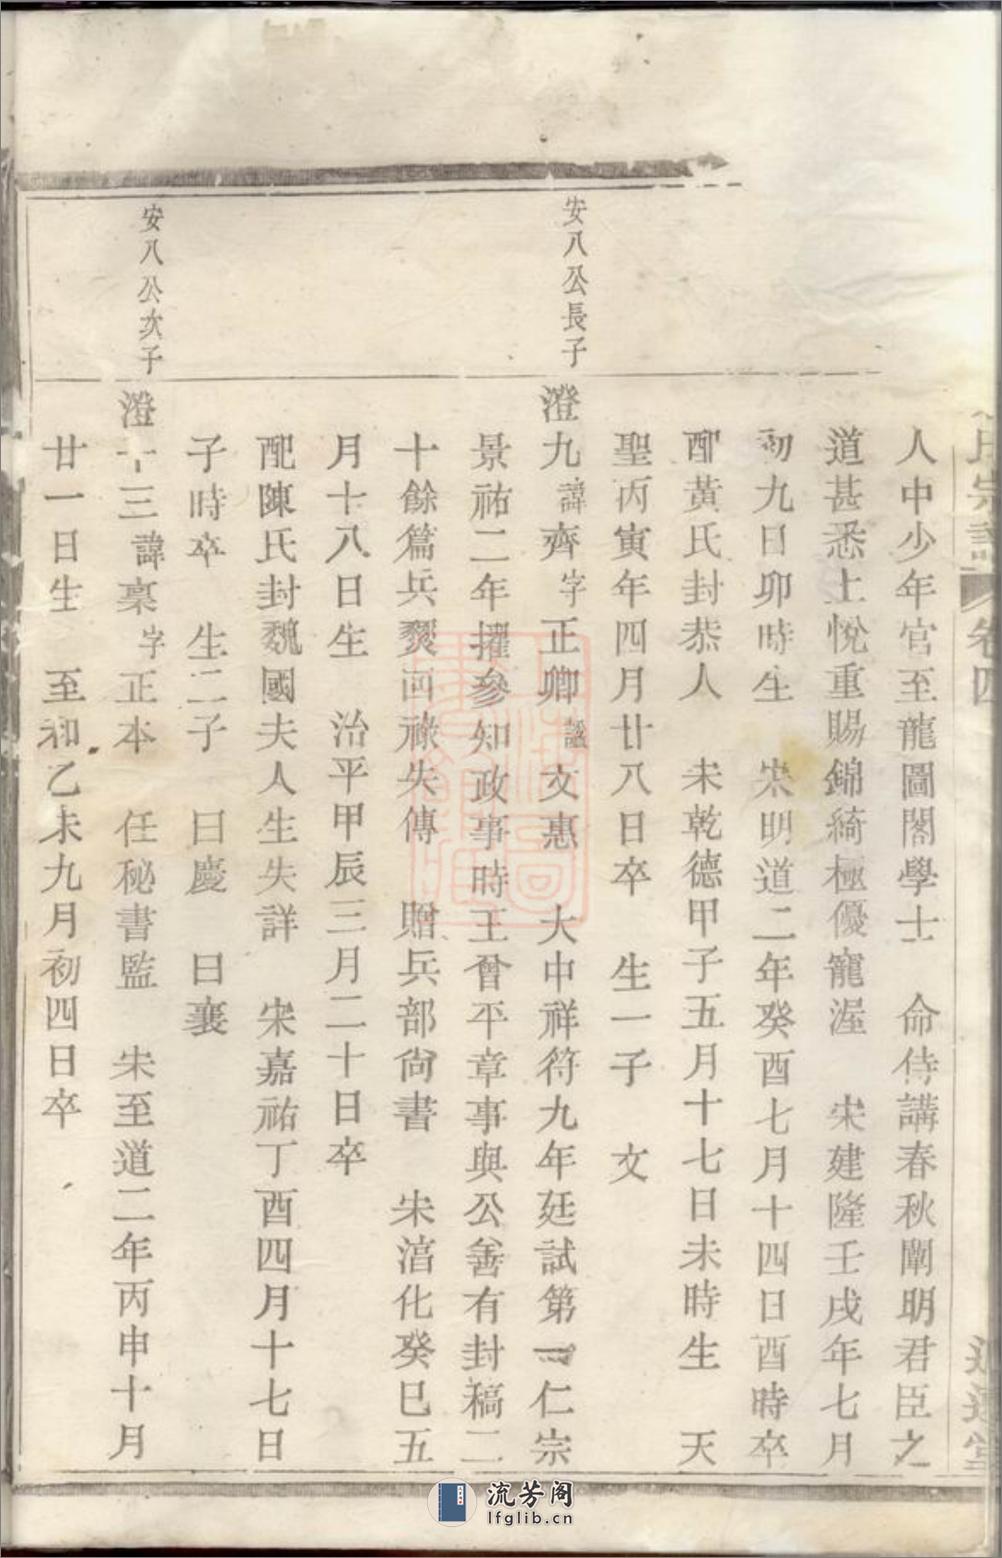 氏宗譜 卷四
人中少年官至龍圖閣學士 命侍講春秋闡明君臣之
道甚悉上悅重賜錦綺極優寵渥 宋建隆壬戌年七月
初九日卯時生 宋明道二年癸酉七月十四日酉時卒
配黃氏封恭人 宋乾德甲子五月十七日未時生 天
聖丙寅年四月廿八日卒 生一子 文
安八公長子
澄九諱齊字正卿諡文惠 大中祥符九年廷試第一仁宗
景祐二年擢參知政事時王曾平章事與公善有封稿二
十餘篇兵燹回祿失傳 贈兵部尚書 宋淳化癸巳五
月十八日生 治平甲辰三月二十日卒
配陳氏封魏國夫人生失詳 宋嘉祐丁酉四月十七日
子時卒 生二子 曰慶 曰襄
安八公次子
澄十三諱稟字正本 任秘書監 宋至道二年丙申十月
廿一日生 至和乙未九月初四日卒
流芳阁
lfglib.cn